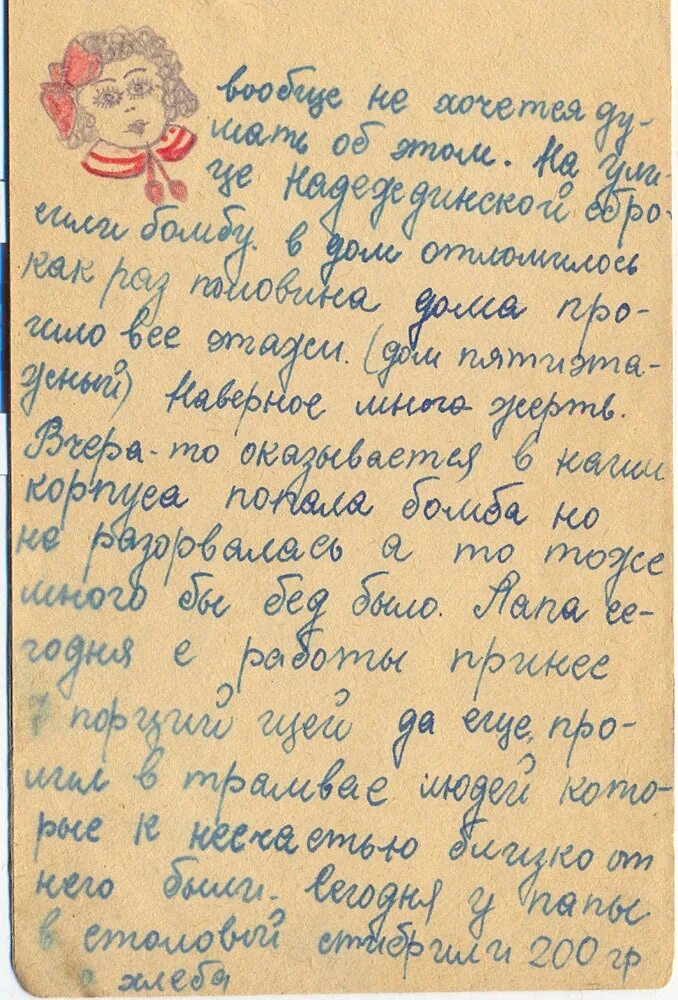 вообще не хочется ду-
мать об этом. На ули-
це Надеждинской сбро-
сили бомбу. в дом отломилось
как раз половина дома про-
шло все этажи. (дом пятиэта-
жный) Наверное много жертв.
Вчера-то оказывается в наши
корпуса попала бомба но
не разорвалась а то тоже
много бы бед было. Папа се-
годня с работы принес
7 порций щей да еще, про-
лил в трамвае людей кото-
рые к несчастью близко от
него были. Сегодня у папы
в столовый стибрили 200 гр
хлеба